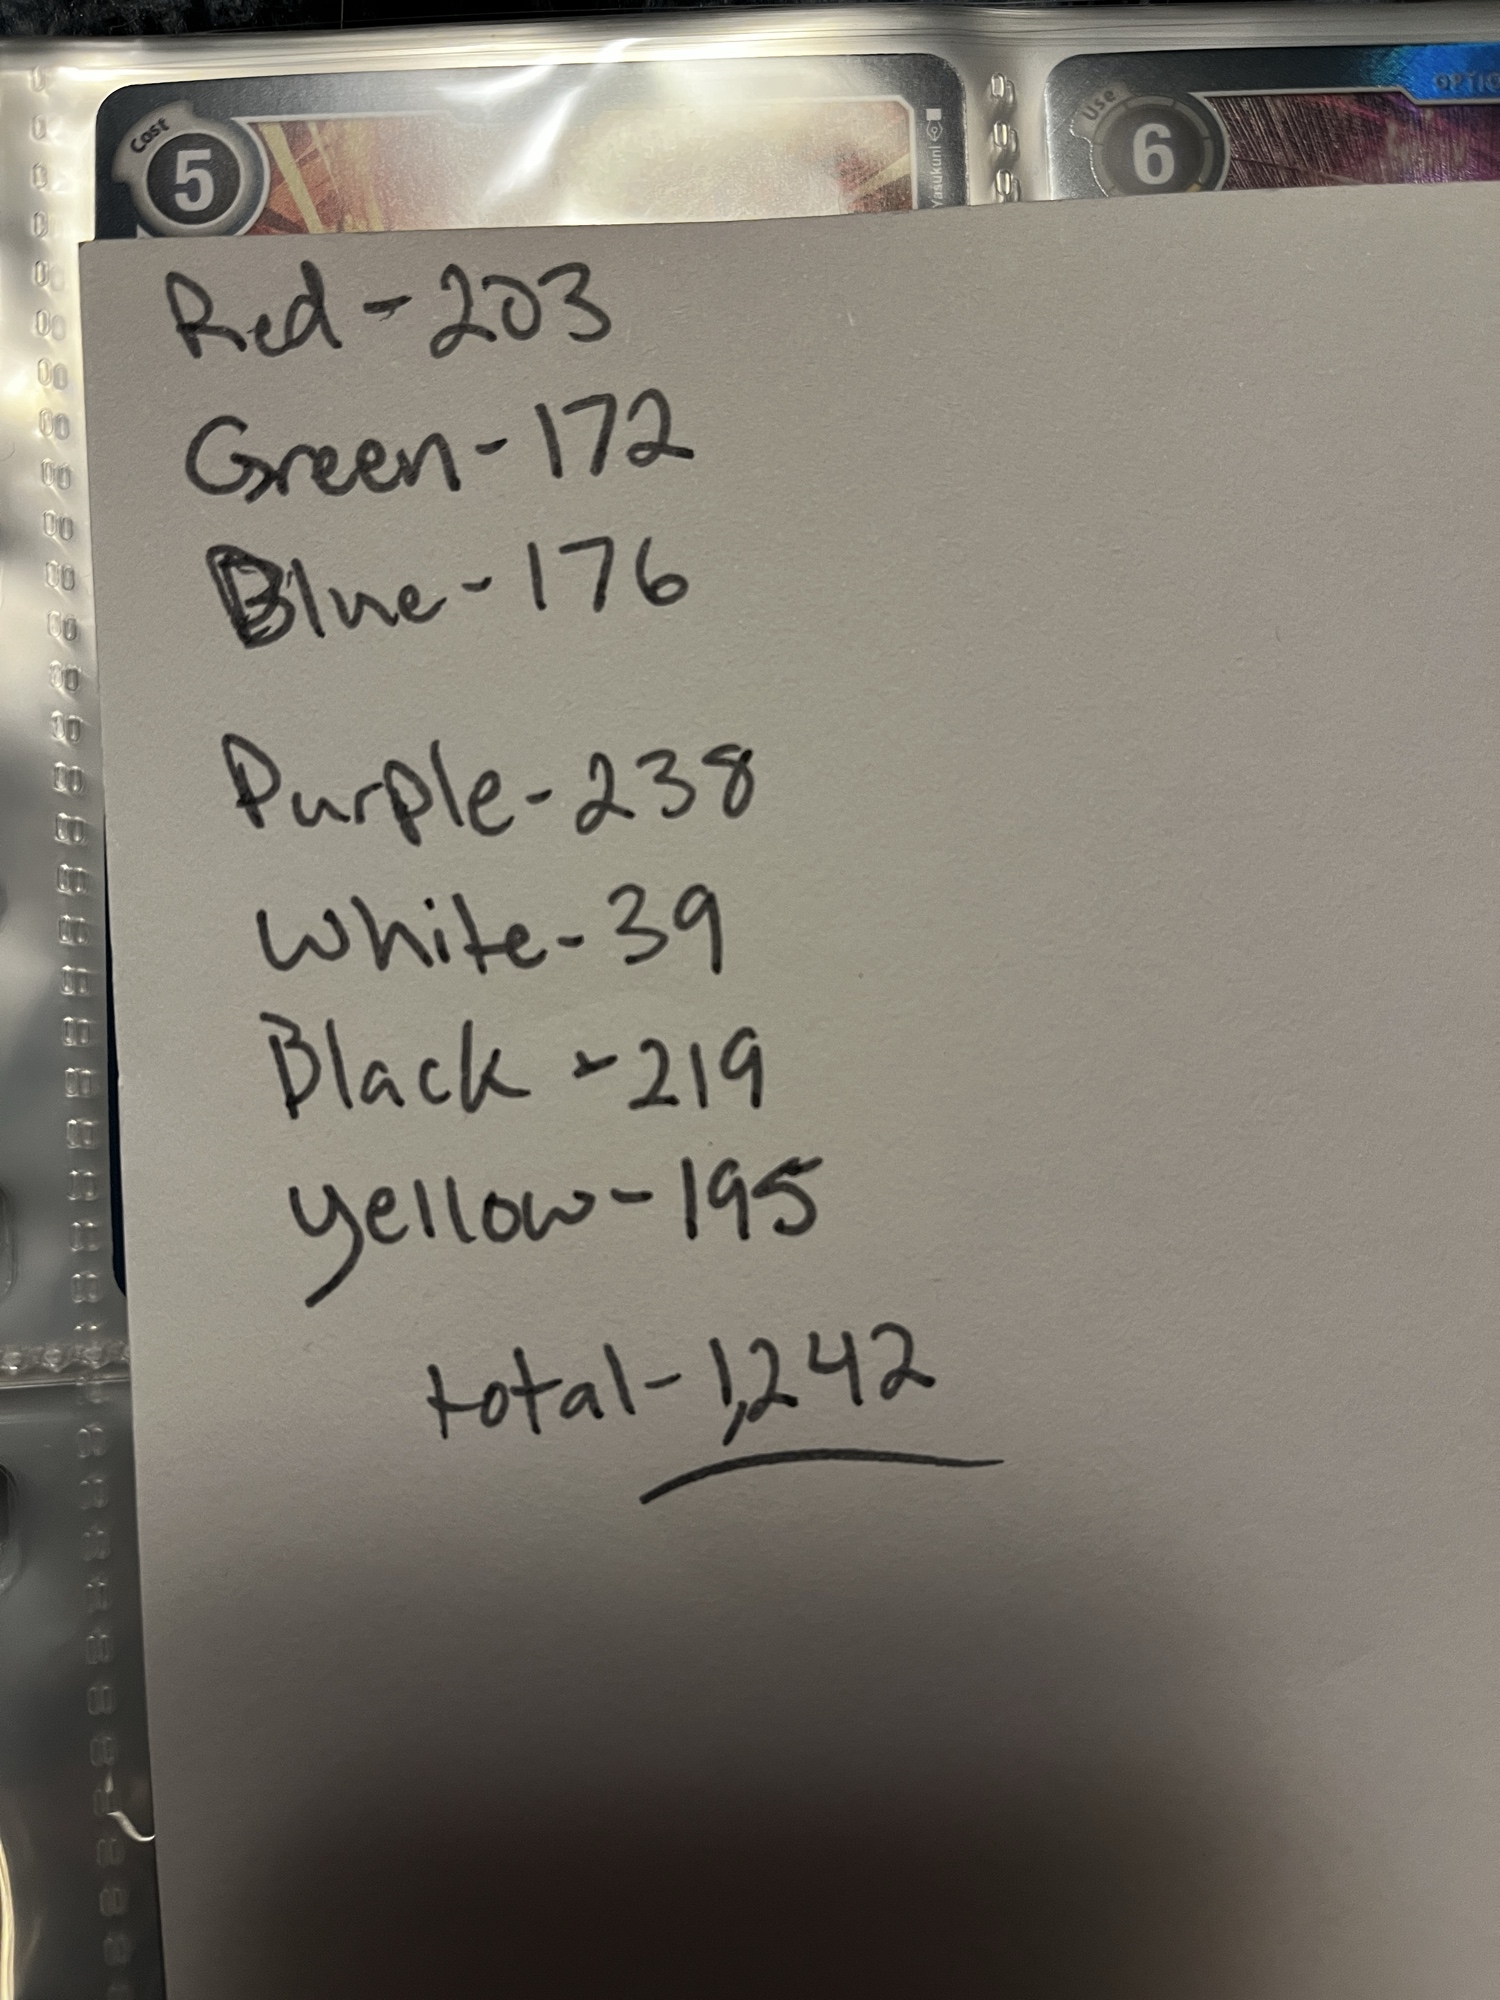 Cost
5
Yasukuni
Use
6
OPTIO
Red - 203
Green - 172
Blue - 176
Purple - 238
White - 39
Black - 219
yellow - 195
total - 1,242